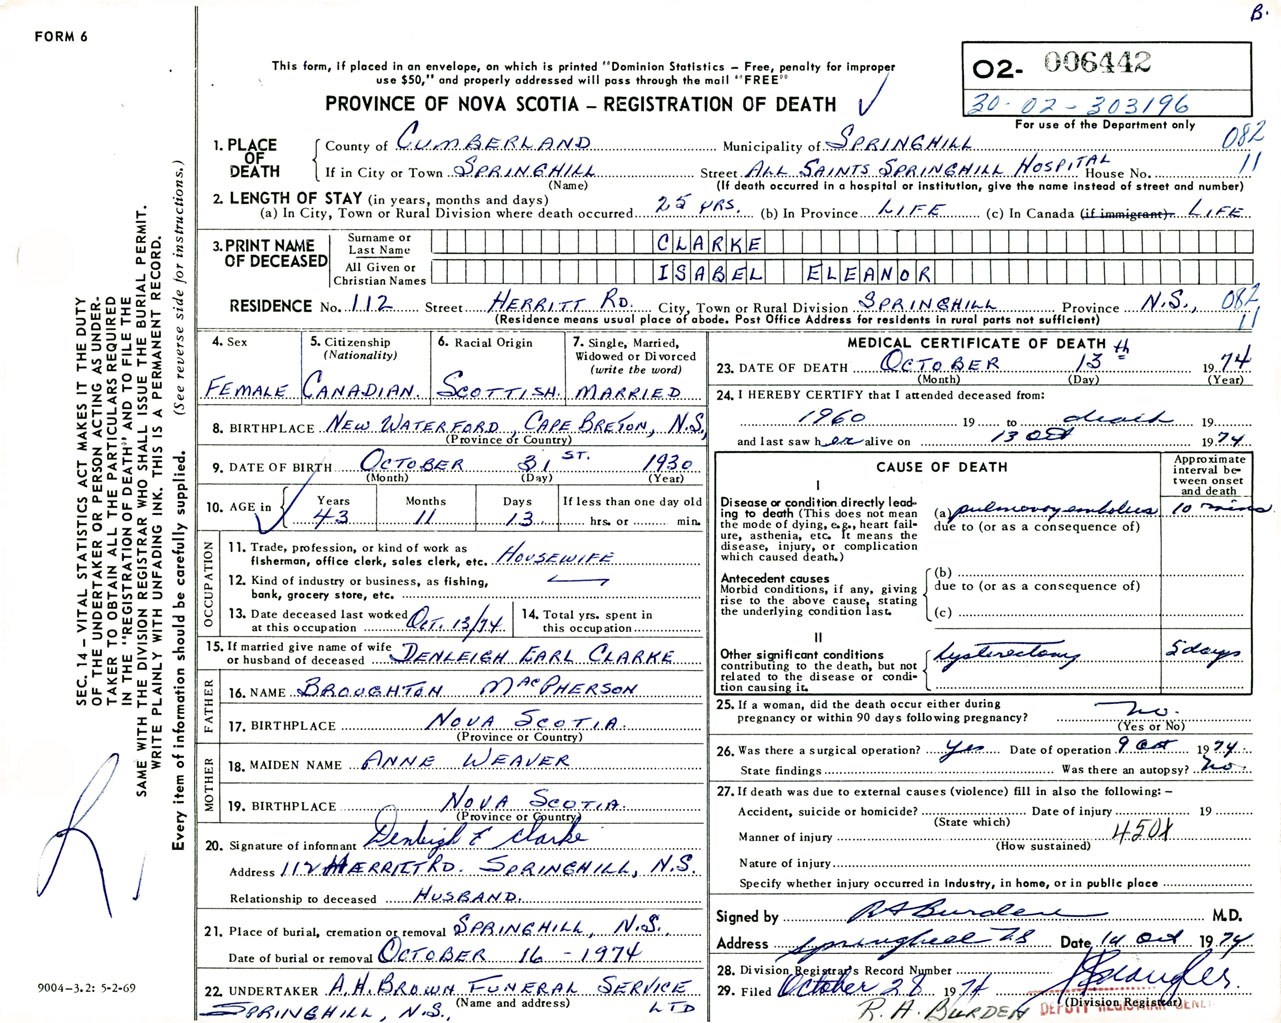 B.
FORM 6
This form, if placed in an envelope, on which is printed "Dominion Statistics – Free, penalty for improper
use $50," and properly addressed will pass through the mail "FREE"
PROVINCE OF NOVA SCOTIA – REGISTRATION OF DEATH
02- 006442
30-02-303196
For use of the Department only
SEC. 14 – VITAL STATISTICS ACT MAKES IT THE DUTY
OF THE UNDERTAKER OR PERSON ACTING AS UNDER-
TAKER TO OBTAIN ALL THE PARTICULARS REQUIRED
IN THE "REGISTRATION OF DEATH" AND TO FILE THE
SAME WITH THE DIVISION REGISTRAR WHO SHALL ISSUE THE BURIAL PERMIT.
WRITE PLAINLY WITH UNFADING INK. THIS IS A PERMANENT RECORD.
Every item of information should be carefully supplied. (See reverse side for instructions.)
1. PLACE OF DEATH
County of CUMBERLAND Municipality of SPRINGHILL 082
If in City or Town SPRINGHILL Street ALL SAINTS SPRINGHILL HOSPITAL House No. 11
(Name) (If death occurred in a hospital or institution, give the name instead of street and number)
2. LENGTH OF STAY (in years, months and days)
(a) In City, Town or Rural Division where death occurred 25 YRS. (b) In Province LIFE (c) In Canada (if immigrant) LIFE
3. PRINT NAME OF DECEASED
Surname or Last Name CLARKE
All Given or Christian Names ISABEL ELEANOR
RESIDENCE No. 112 Street HERRITT RD. City, Town or Rural Division SPRINGHILL Province N.S., 082
(Residence means usual place of abode. Post Office Address for residents in rural parts not sufficient) 11
4. Sex
FEMALE
5. Citizenship (Nationality)
CANADIAN
6. Racial Origin
SCOTTISH
7. Single, Married, Widowed or Divorced (write the word)
MARRIED
8. BIRTHPLACE NEW WATERFORD, CAPE BRETON, N.S.,
(Province or Country)
9. DATE OF BIRTH OCTOBER 31 ST. 1930
(Month) (Day) (Year)
10. AGE in Years Months Days If less than one day old
43 11 13 hrs. or min.
OCCUPATION
11. Trade, profession, or kind of work as
fisherman, office clerk, sales clerk, etc. HOUSEWIFE
12. Kind of industry or business, as fishing,
bank, grocery store, etc.
13. Date deceased last worked at this occupation OCT. 13/74
14. Total yrs. spent in this occupation
15. If married give name of wife
or husband of deceased DENLEIGH EARL CLARKE
FATHER
16. NAME BROUGHTON MACPHERSON
17. BIRTHPLACE NOVA SCOTIA.
(Province or Country)
MOTHER
18. MAIDEN NAME ANNE WEAVER
19. BIRTHPLACE NOVA SCOTIA.
(Province or Country)
20. Signature of informant Denleigh E Clarke
Address 112 HERRITT RD. SPRINGHILL, N.S.
Relationship to deceased HUSBAND.
21. Place of burial, cremation or removal SPRINGHILL, N.S.
Date of burial or removal OCTOBER 16 - 1974
22. UNDERTAKER A.H. BROWN FUNERAL SERVICE
(Name and address)
SPRINGHILL, N.S., LTD
9004-3.2: 5-2-69
MEDICAL CERTIFICATE OF DEATH
23. DATE OF DEATH OCTOBER 13th 1974
(Month) (Day) (Year)
24. I HEREBY CERTIFY that I attended deceased from:
1960 19 to death 19
and last saw her alive on 13 Oct 1974
CAUSE OF DEATH
Approximate interval be-tween onset and death
I
Disease or condition directly lead-
ing to death (This does not mean
the mode of dying, e.g., heart fail-
ure, asthenia, etc. It means the
disease, injury, or complication
which caused death.)
(a) pulmonary embolus 10 mins
due to (or as a consequence of)
Antecedent causes
Morbid conditions, if any, giving
rise to the above cause, stating
the underlying condition last.
(b)
due to (or as a consequence of)
(c)
II
Other significant conditions
contributing to the death, but not
related to the disease or condi-
tion causing it.
hysterectomy 5 days
25. If a woman, did the death occur either during
pregnancy or within 90 days following pregnancy? no.
(Yes or No)
26. Was there a surgical operation? yes Date of operation 9 Oct 1974.
State findings Was there an autopsy? no.
27. If death was due to external causes (violence) fill in also the following: –
Accident, suicide or homicide? Date of injury 19
(State which)
Manner of injury 450X
(How sustained)
Nature of injury
Specify whether injury occurred in Industry, in home, or in public place
Signed by RA Burden M.D.
Address Springhill NS Date 14 Oct 1974
28. Division Registrar's Record Number
29. Filed October 28 1974
(Division Registrar)
DEPUTY REGISTRAR GENERAL
R. A. BURDEN